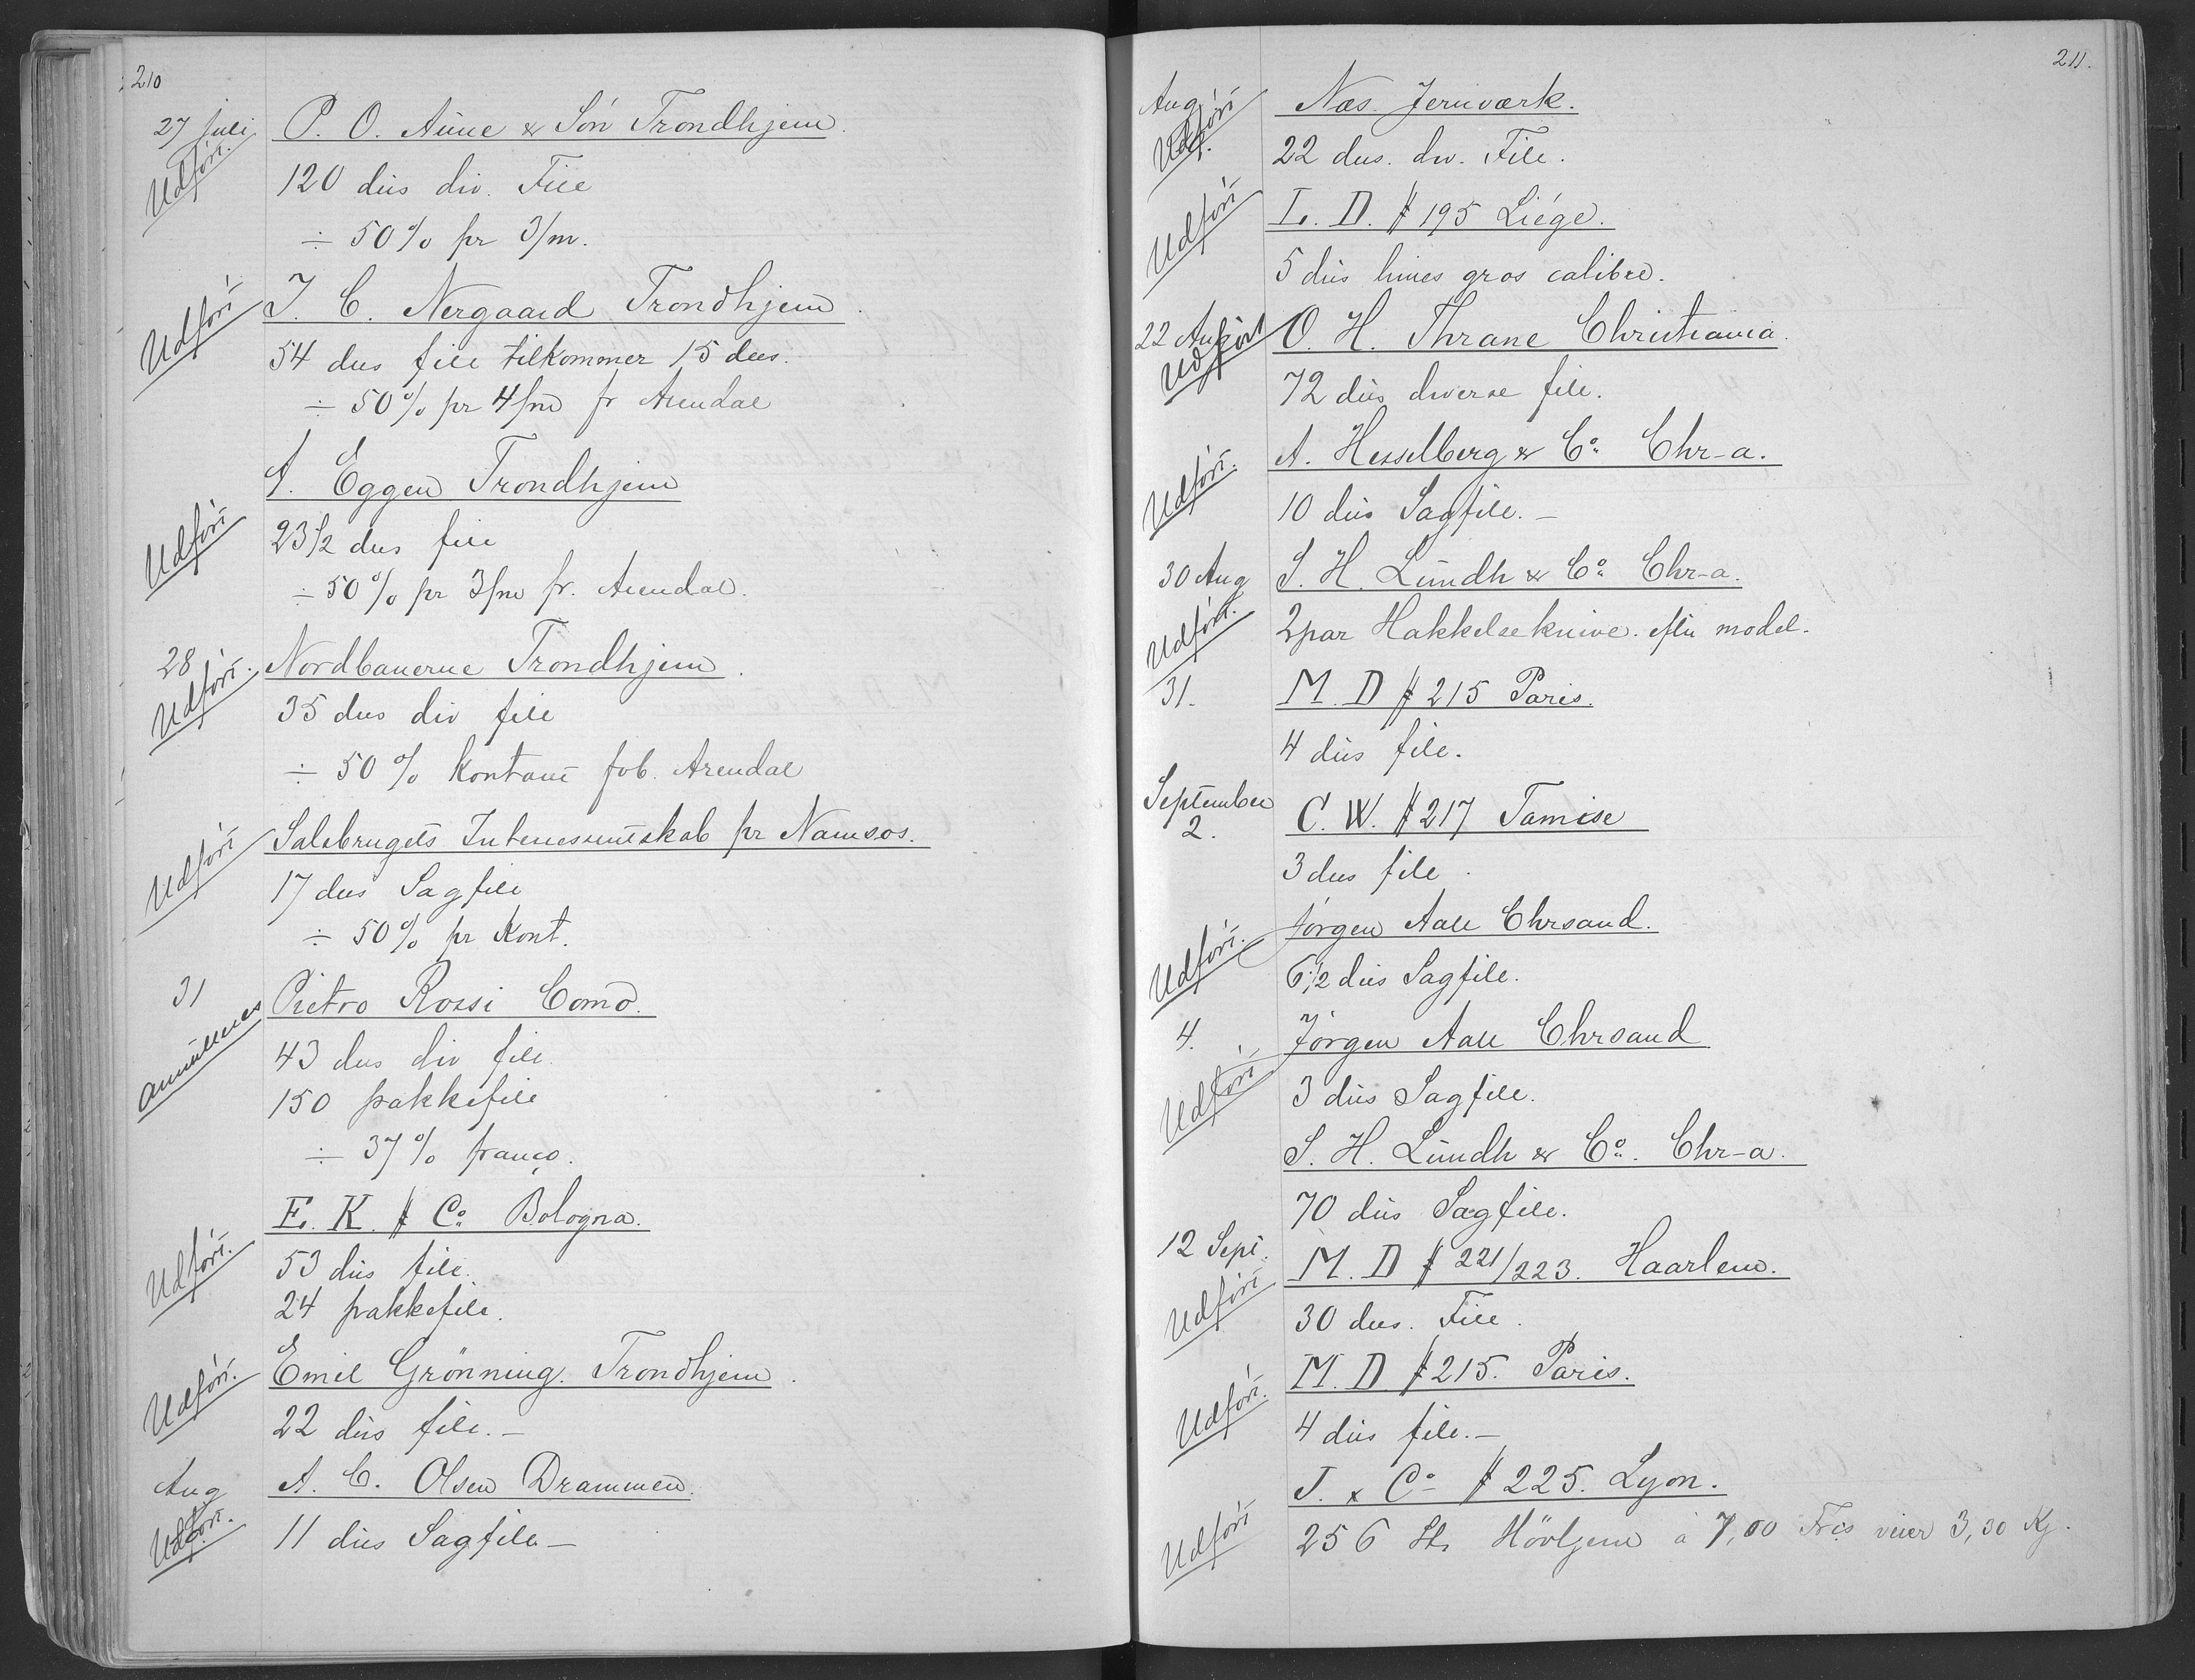 210
27 Juli P. O. Aune & Sön Trondhjem.
Udført. 120 dus div. File
÷ 50 % pr 3/m.
Udført J. C. Nergaard Trondhjem.
54 dus file tilkommer 15 dus.
÷ 50 % pr 4/m fr Arendal
A. Eggen Trondhjem
Udført 23 1/2 dus file
÷ 50 % pr 3/m fr. Arendal.
28 Nordbanerne Trondhjem.
Udført. 35 dus div file
÷ 50 % Kontant fob. Arendal
Udført Salsbrugets Interessentskab pr Namsos.
17 dus Sagfile
÷ 50 % pr Kont.
31 Pietro Rossi Como.
annulleres 43 dus div file.
150 pakkefile
÷ 37 % franco.
E. K. # Co Bologna.
Udført. 53 dus file.
24 pakkefile.
Udført. Emil Grönning. Trondhjem.
22 dus file. —
Aug A. C. Olsen Drammen.
Udført. 11 dus Sagfile —
211.
Aug Næs. Jernværk.
Udført 22 dus. div. File.
Udført L. D. # 195 Liége.
5 dus limes gros calibre.
22 Aug O. H. Thrane Christiania.
Udført 72 dus diverse file.
A. Hesselberg & Co Chr-a.
Udført. 10 dus Sagfile. —
30 Aug S. H. Lundh & Co Chr-a.
Udført. 2 par Hakkelseknive. efter model.
31. M. D # 215 Paris.
4 dus file.
September
2. C. W. # 217 Tamise
3 dus file.
Udført. Jörgen Aall Chrsand.
6 1/2 dus Sagfile.
4. Jörgen Aall Chrsand
Udført 3 dus Sagfile.
S. H. Lundh & Co. Chr-a.
70 dus Sagfile.
12 Sept. M. D # 221/223. Haarlem.
Udført 30 dus. File.
M. D. # 215. Paris.
Udført. 4 dus file. —
J. & Co # 225. Lyon.
Udført 256 St. Hövljern à 7,00 Frcs veier 3,30 Kg.